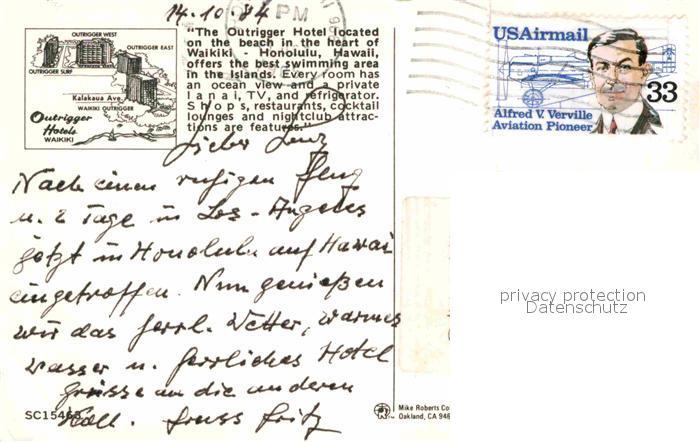 14.10.84
PM
OUTRIGGER WEST
OUTRIGGER EAST
OUTRIGGER SURF
Kalakaua Ave.
WAIKIKI OUTRIGGER
Outrigger
Hotels
WAIKIKI
"The Outrigger Hotel located
on the beach in the heart of
Waikiki - Honolulu, Hawaii,
offers the best swimming area
in the islands. Every room has
an ocean view and a private
lanai, TV, and refrigerator.
Shops, restaurants, cocktail
lounges and nightclub attrac-
tions are features."
USAirmail
33
Alfred V. Verville
Aviation Pioneer
Lieber Lenz
Nach einen ruhigen Flug
u. 2 Tage in Los-Angeles
jetzt in Honolulu auf Hawai
eingetroffen. Nun genießen
wir das herrl. Wetter, warmes
Wasser u. herrliches Hotel
Grüsse an die anderen
Koll. Gruss Fritz
SC15463
Mike Roberts Co
Oakland, CA 946
privacy protection
Datenschutz